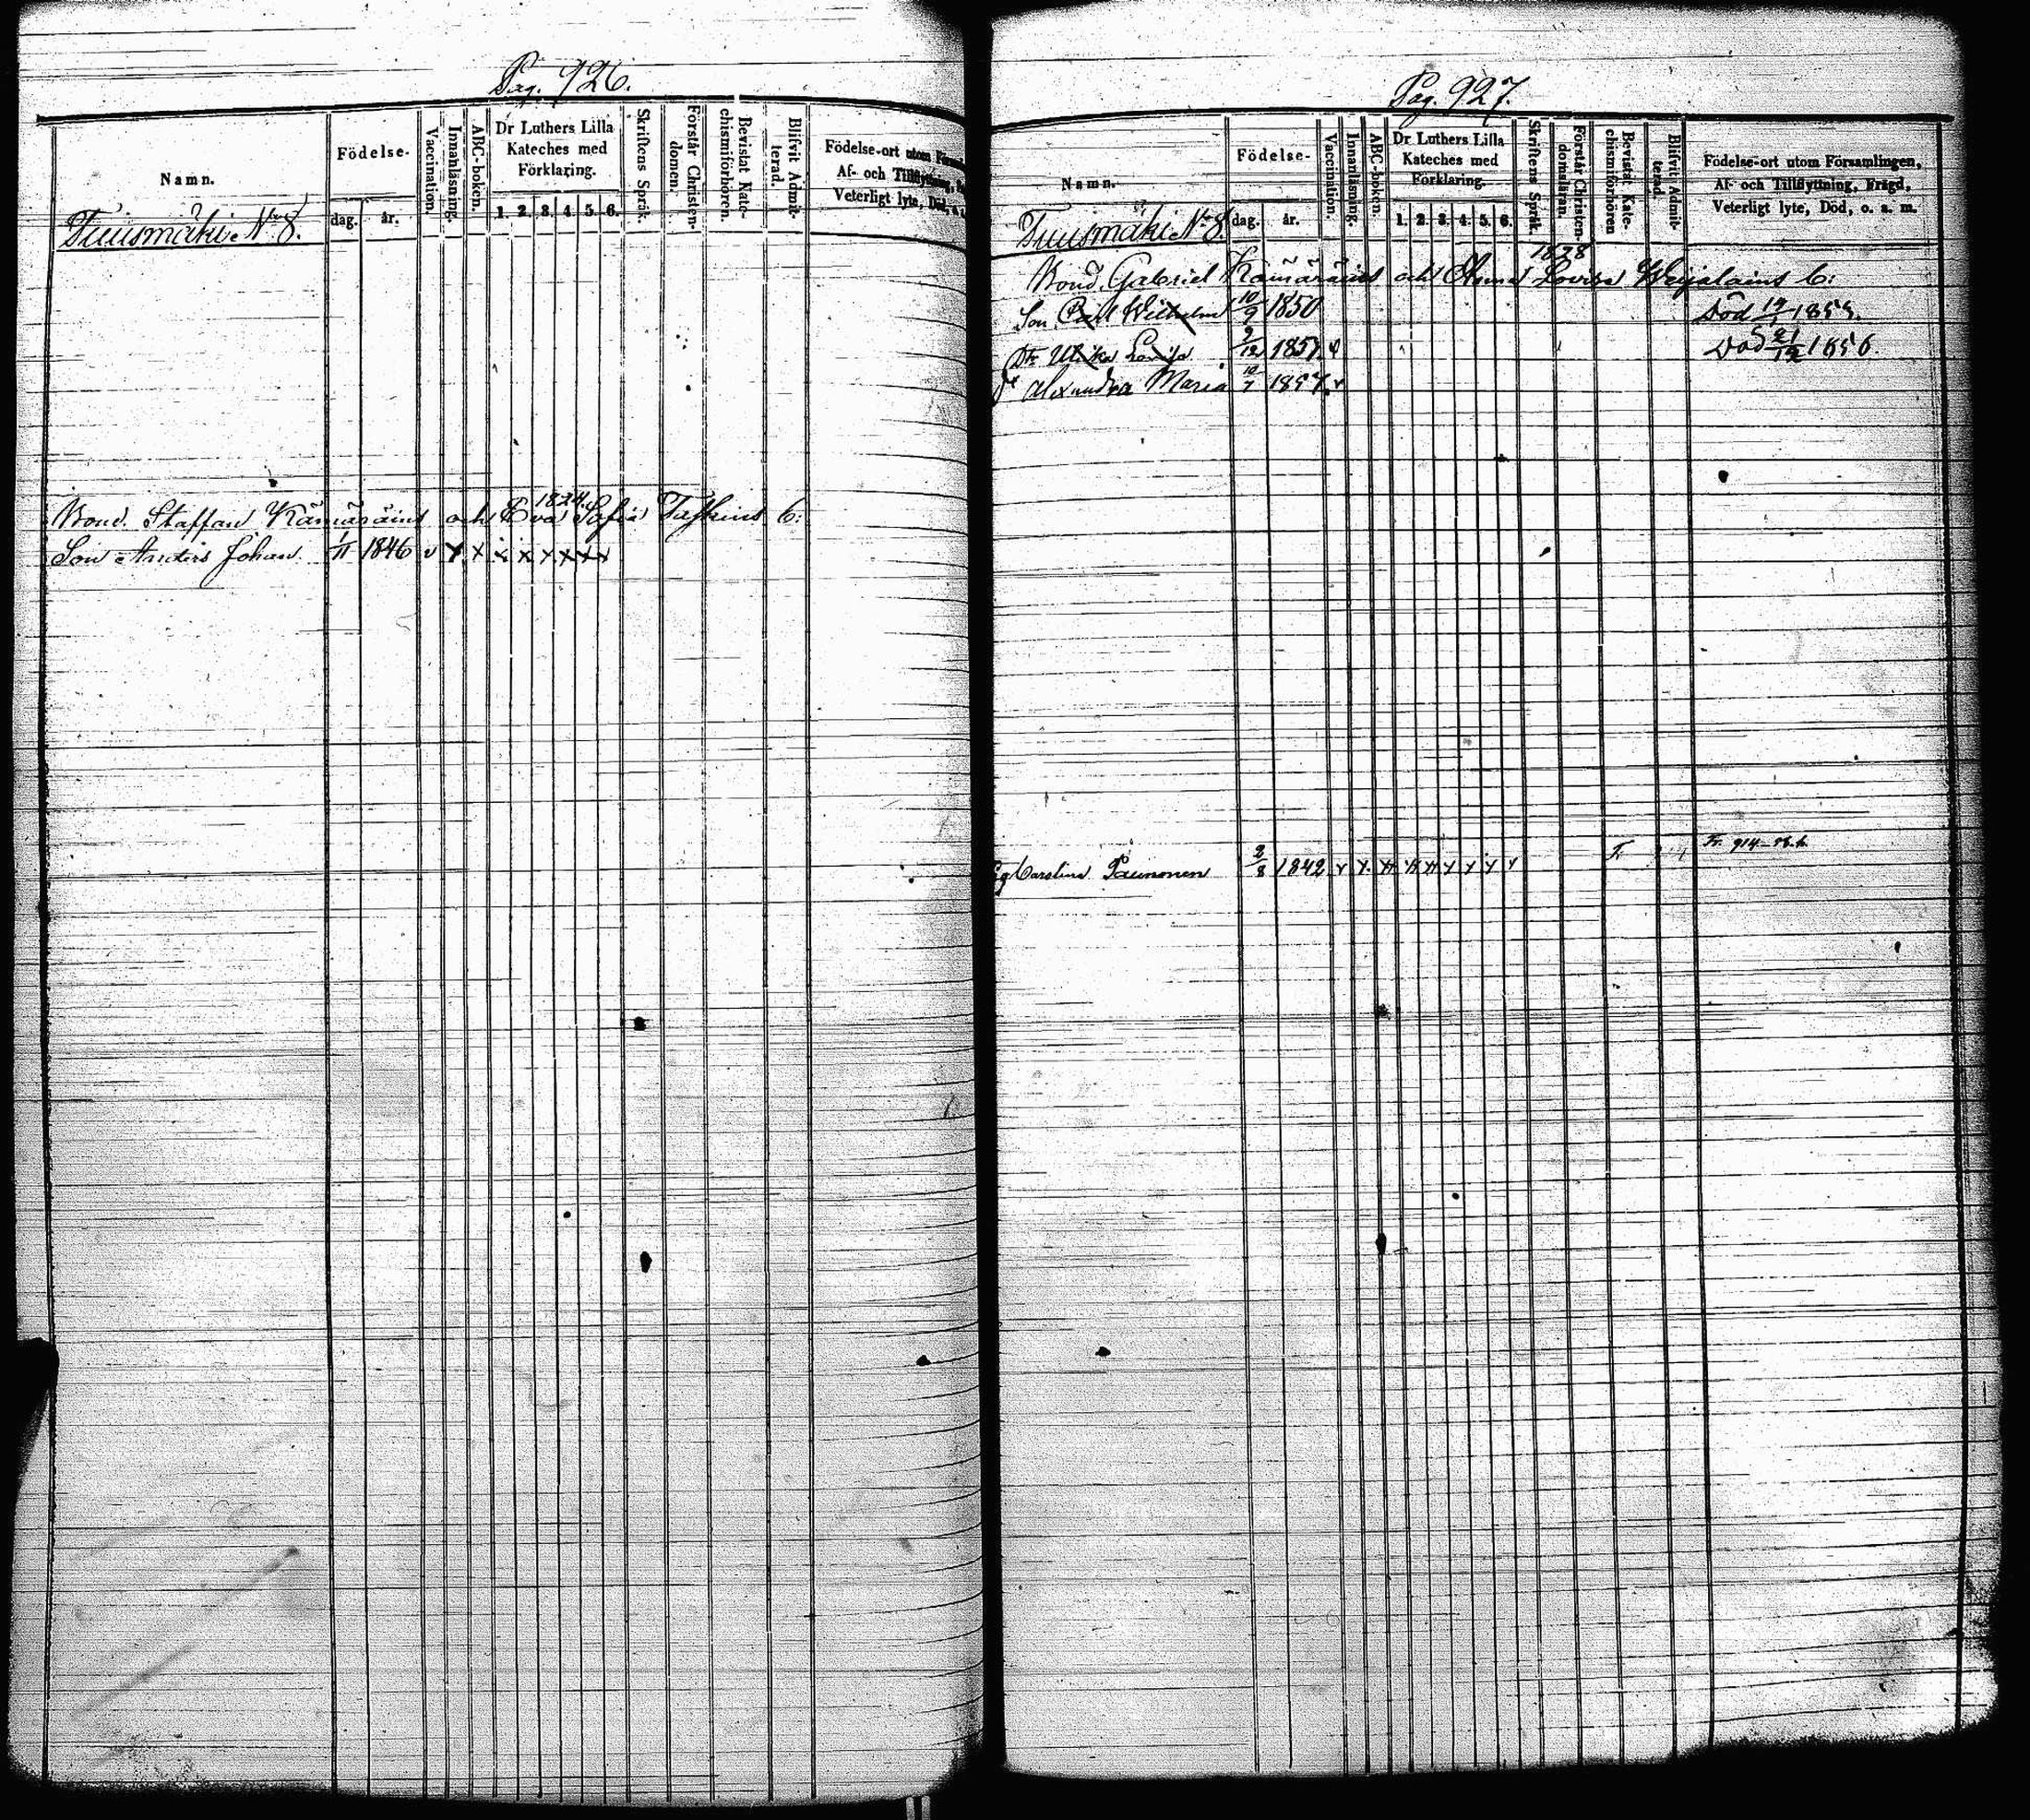 Pag. 926.
Namn.
Födelse-
dag.
år.
Vaccination.
Innanläsning.
ABC-boken.
Dr Luthers Lilla
Kateches med
Förklaring.
1. 2. 3. 4. 5. 6.
Skriftens Språk.
Förstår Christen-
domen.
Bevistat Kate-
chismiförhören.
Blifvit Admit-
terad.
Födelse-ort utom
Af- och Tillflyttning,
Veterligt lyte, Död, o. a.
Tuusmäki No 8.
1824.
Bond. Staffan Kämäräinš och Eva Sofia Taskinš b:
Son Anders Johan. 1/11 1846 v x x x x x x x x
Pag. 927.
Namn.
Födelse-
dag.
år.
Vaccination.
Innanläsning.
ABC-boken.
Dr Luthers Lilla
Kateches med
Förklaring.
1. 2. 3. 4. 5. 6.
Skriftens Språk.
Förstår Christen-
domsläran.
Bevistat Kate-
chismiförhören
Blifvit Admit-
terad.
Födelse-ort utom Församlingen,
Af- och Tillflyttning, Frägd,
Veterligt lyte, Död, o. a. m.
Tuusmäki No 8.
1828
Bond. Gabriel Kämäräinš och Anna Lovisa Weijalainš b:
Son Carl Wilhelm 10/9 1850 Död 1855.
Dr Ulrika Lovisa 2/12 1851. v Död 21/12 1856.
Dr Alexandra Maria 10/7 1857. v
Carolina Paunonen 2/8 1842 v x x x x x x x x Fr. 914